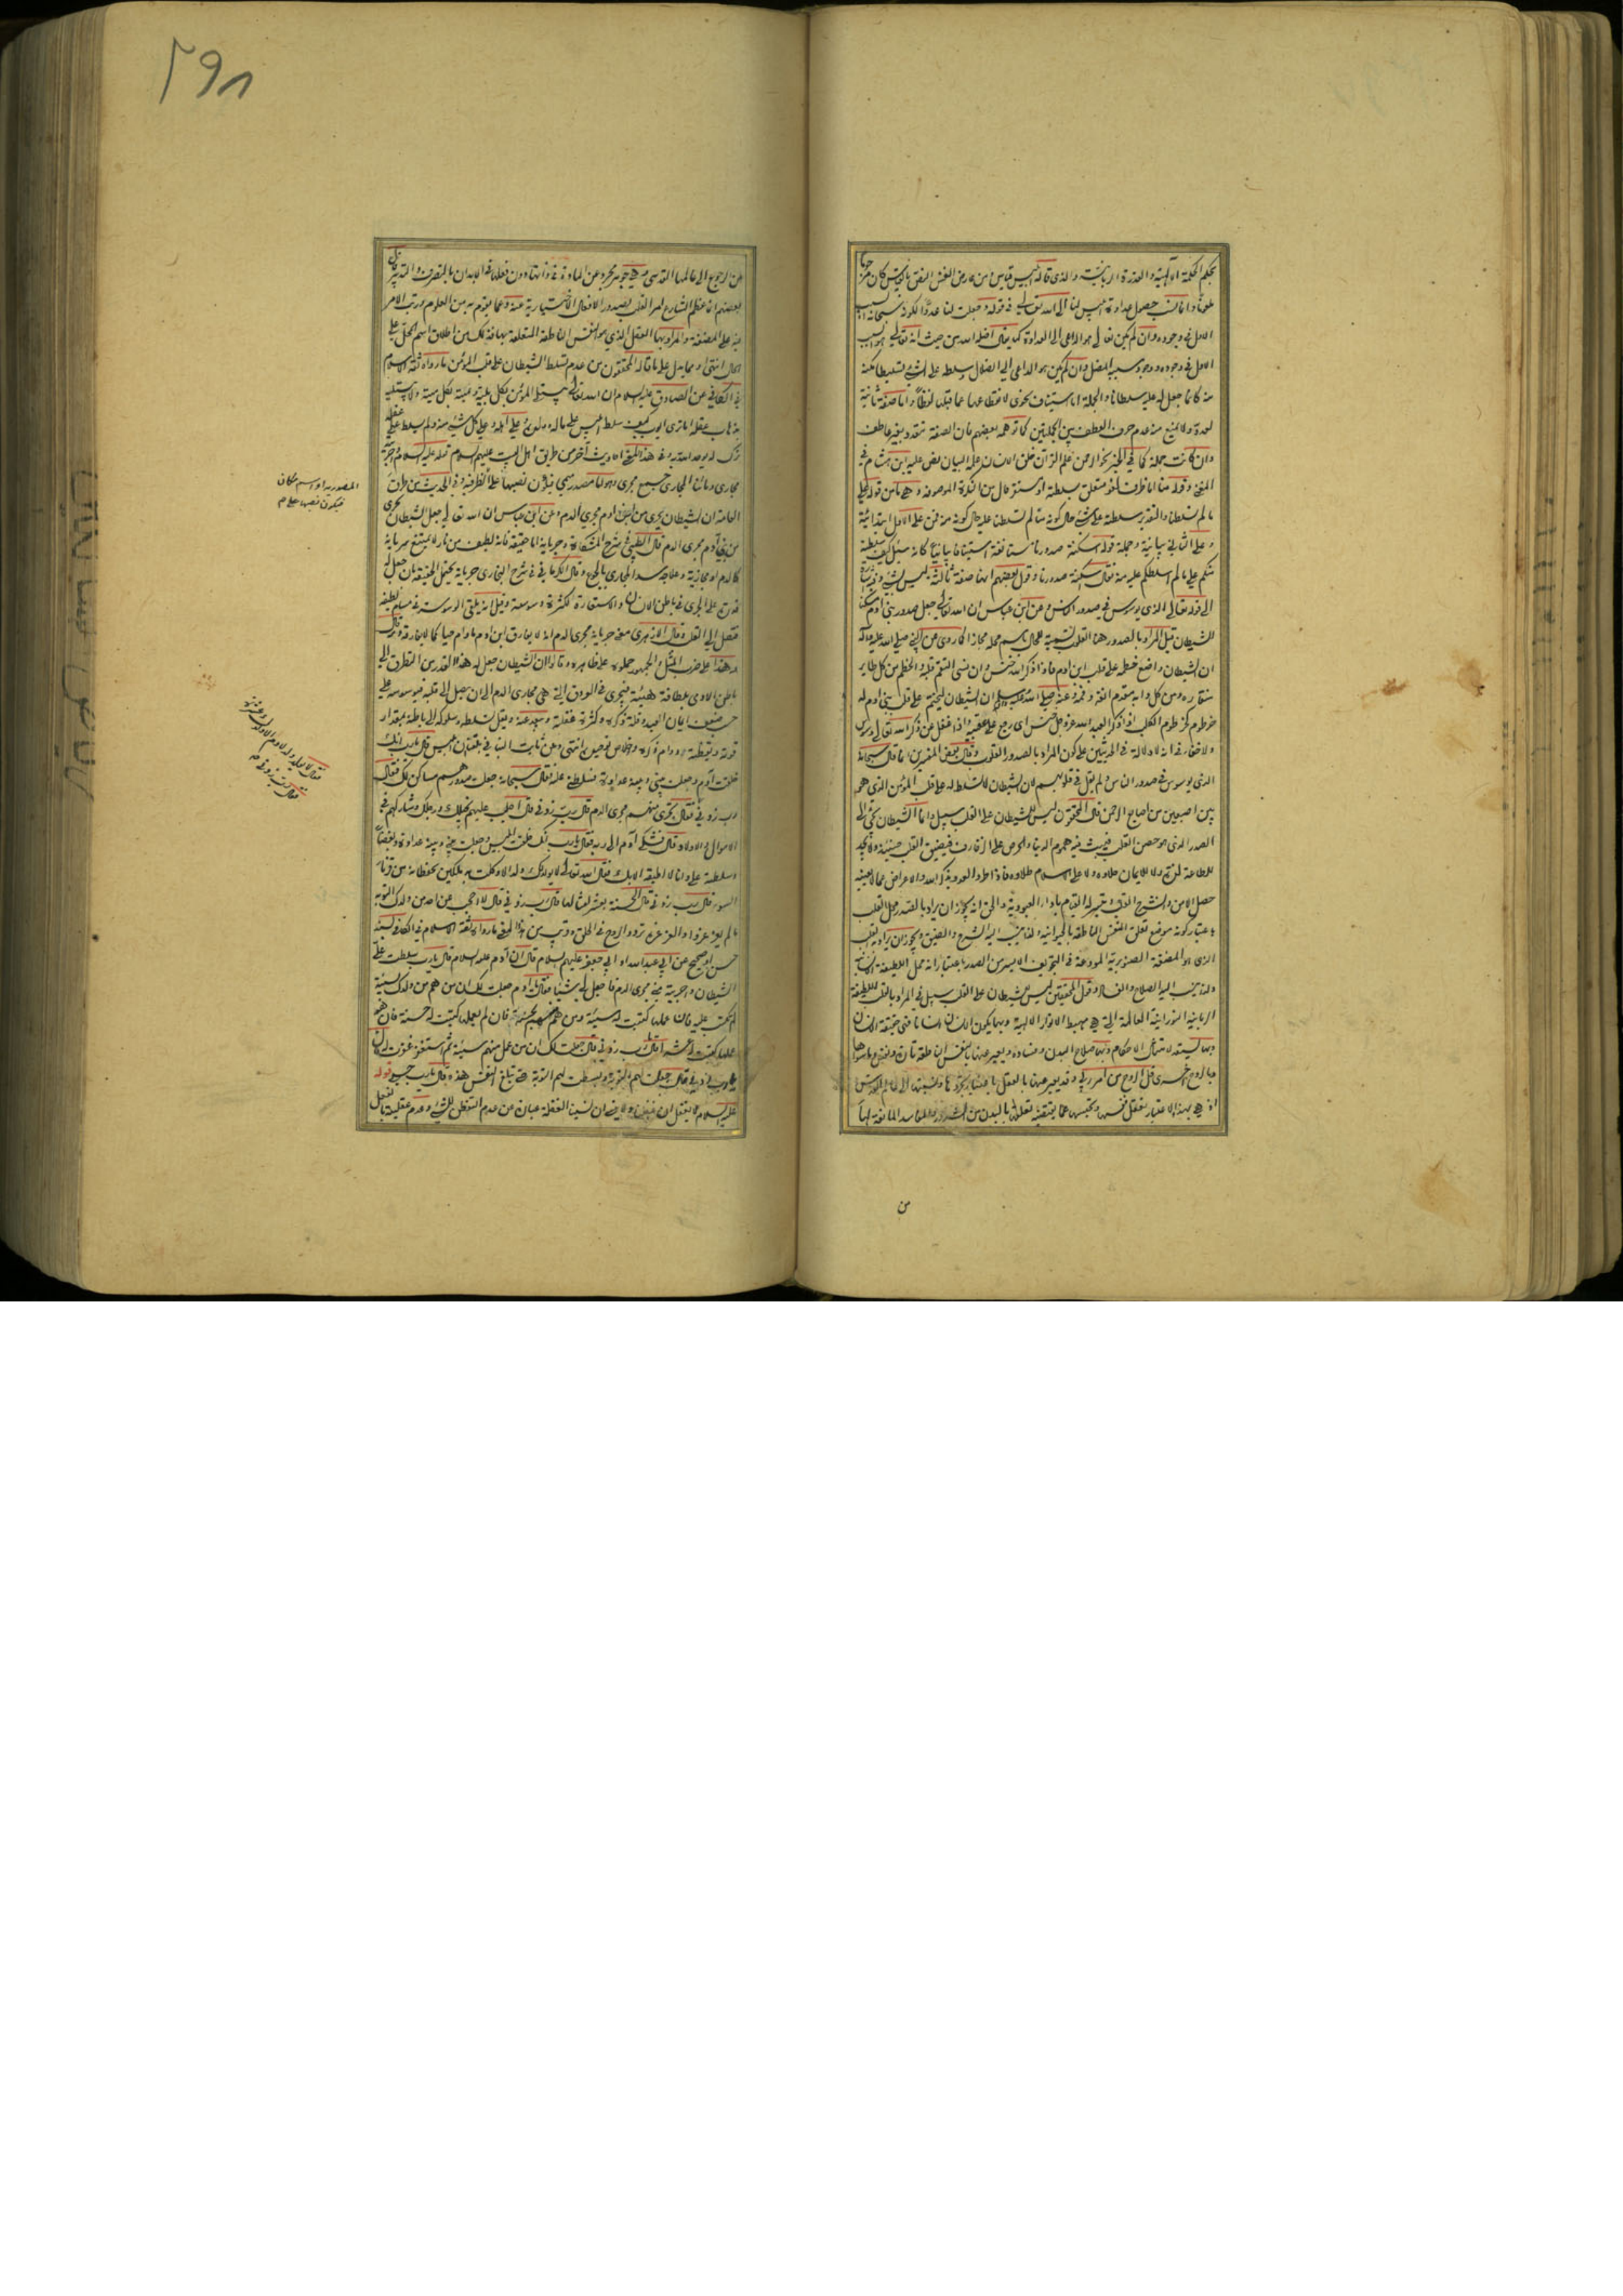 بحكم الحكمة الآلهية والقدرة الربانية والذي قاله ابليس قياس من عارض النص بالقياس كان مرجوما
ملعونا وانما نسب حصول عداوة ابليس لنا الى الله تعالى في قوله وجعلت لنا عدوا لكونه سبحانه السبب
الاول في وجوده وان لم يكن تعالى هو الداعي الى العداوة كما يقال اضله الله من حيث انه تعالى هو السبب
الاول في وجوده ووجود سببية المضل وان لم يكن هو الداعي الى الضلال وسلطه على الشيء تسليطا مكنه
منه كانما جعل له عليه سلطانا والجملة اما استيناف نحوي لانقطاعها عما قبلها لفظا واما صفة ثانية
لعدو ولا يمنع منه عدم حرف العطف بين الجملتين كما توهمه بعضهم فان الصفة تتعدد بغير عاطف
وان كانت جملة كما في الخبر نحو الرحمن علم القرآن خلق الانسان علمه البيان نص عليه ابن هشام في
المغني وقوله منا اما ظرف لغو متعلق بسلطته او مستقر حال من النكرة الموصوفة وهي ما من قوله على
ما لم تسلطنا والتقدير سلطته على شيء حال كونه منا لم تسلطنا عليه حال كونه منه فمن على الاول ابتدائية
وعلى الثاني بيانية وجملة قوله اسكنته صدورنا مستانفة استينافا بيانيا كانه سئل كيف سلطته
منكم على ما لم اسلطكم عليه منه فقال اسكنته صدورنا وقول بعضهم انها صفة ثالثة ليس بشيء وفيه اشارة
الى قوله تعالى الذي يوسوس في صدور الناس وعن ابن عباس ان الله تعالى جعل صدور بني ادم مسكنا
للشيطان قيل المراد بالصدور هنا القلوب تسمية للحال باسم محله مجازا كما روي عن النبي صلى الله عليه وآله
ان الشيطان واضع خطمه على قلب ابن ادم فاذا ذكر الله خنس وان نسي التقم قلبه والخطم من كل طاير
منقاره ومن كل دابة مقدم انفه وفمه وعنه صلى الله عليه وسلم ان الشيطان ليجثم على قلب بني ادم له
خرطوم كخرطوم الكلب اذا ذكر العبد الله عز وجل خنس اى رجع على عقبيه واذا غفل عن ذكر الله تعالى وسوس
ولا خفاء في انه لا دلالة في الحديثين على كون المراد بالصدور القلوب وقال بعض المفسرين انما قال سبحانه
الذي يوسوس في صدور الناس ولم يقل في قلوبهم لان الشيطان لا تسلط له على قلب المؤمن الذي هو
بين اصبعين من اصابع الرحمن قال المحققون ليس للشيطان على القلب سبيل وانما الشيطان يجيء الى
الصدر الذي هو حصن القلب فيبث فيه هموم الدنيا والحرص على الزخارف فيضيق القلب حينئذ ولا يجد
للطاعة لذة ولا للايمان حلاوة ولا على الاسلام طلاوة فاذا طرد العدو بذكر الله والاعراض عما لا يعنيه
حصل الامن وانشرح القلب وتيسر له القيام باداء العبودية والحق انه يجوز ان يراد بالصدر محل القلب
باعتبار كونه موضع تعلق النفس الناطقة بالحيوانية ولذا ينسب اليه الشرح والضيق ويجوز ان يراد به القلب
الذي هو المضغة الصنوبرية المودعة في التجويف الايسر من الصدر باعتبار انه محل اللطيفة الانسانية
ولذا ينسب اليه الصلاح والفساد وقول المحققين ليس للشيطان على القلب سبيل في المراد بالقلب اللطيفة
الربانية النورانية العالمة التي هي مهبط الانوار الالهية وبها يكون الانسان انسانا فهي حقيقة الانسان
وبها يستعد لامتثال الاحكام وبها صلاح البدن وفساده ويعبر عنها بالنفس الناطقة تارة ونفس وما سواها
وبالروح اخرى قل الروح من امر ربي وقد يعبر عنها بالعقل باعتبار تجردها ونسبتها الى عالم القدس
اذ هي بهذا الاعتبار تعقل نفسها وتحبسها عما يقتضيه تعلقها بالبدن من الشرور والمفاسد المانعة لها
من
٢٩٨
عن الرجوع الى عالمها القدسي فهي جوهر مجرد عن المادة في ذاتها دون فعلها في الابدان بالتصرف والتدبير قال
بعضهم انما عظم الشارع امر القلب لصدور الافعال الاختيارية عنه وعما يقوم به من العلوم ورتب الامر
فيه على المضغة والمراد بها العقل الذي هو النفس الناطقة المتعلقة بها فذلك من اطلاق اسم المحل على
الحال انتهى ومما يدل على ما قاله المحققون من عدم تسلط الشيطان على قلب المؤمن ما رواه ثقة الاسلام
في الكافي عن الصادق عليه السلام ان الله تعالى يبتلي المؤمن بكل بلية ويميته بكل ميتة ولا يبتليه
بذهاب عقله اما ترى ايوب كيف سلط ابليس على ماله وعلى ولده وعلى اهله وعلى كل شيء منه ولم يسلط على عقله
ترك له يوحد الله به وفي هذا المعنى احاديث اخر من طريق اهل البيت عليهم السلام قوله عليه السلام واجريته
مجاري دمائنا المجاري جمع مجرى وهو اما مصدر ميمي فيكون نصبها على الظرفية وفي الحديث من طرق
العامة ان الشيطان يجري من ابن ادم مجرى الدم وعن ابن عباس ان الله تعالى جعل الشيطان يجري
من بني آدم مجرى الدم قال الطيبي في شرح المشكاة وجريانه اما حقيقة فانه لطيف من نار لا يمتنع سريانه
كالدم او مجازية وعلاجه سد المجاري بالجوع وقال الكرماني في شرح البخاري جريانه يحتمل الحقيقة بان جعل له
قوة على الجري في باطن الانسان والاستعارة لكثرة وسوسته وقيل انه يلقي الوسوسة في مسام لطيفة
فتصل الى القلب وقال الازهري معنى جريانه مجرى الدم انه لا يفارق ابن ادم ما دام حيا كما لا يفارقه دمه وقال
هذا على ضرب المثل والجمهور حملوه على ظاهره وقالوا ان الشيطان جعل له هذا القدر من التطرق الى
باطن الادمي بلطافة هيئته فيجري في العروق التي هي مجاري الدم الى ان يصل الى قلبه فيوسوسه على
حسب ضعف ايمان العبد وقلة ذكره وكثرة غفلته ويبعد عنه ويقل تسلطه وسلوكه الى باطنه بمقدار
قوته ويقظته ودوام ذكره واخلاص توحيده انتهى وعن ثابت البناني بلغنا ان ابليس قال يا رب انك
خلقت آدم وجعلت بيني وبينه عداوة فسلطني عليه فقال سبحانه جعلت صدورهم مساكن لك فقال
رب زدني فقال تجري منهم مجرى الدم قال رب زدني قال اجلب عليهم بخيلك ورجلك وشاركهم في
الاموال والاولاد قال فشكى آدم الى ربه فقال يا رب انك خلقت ابليس وجعلت بيني وبينه عداوة وبغضاء
وسلطته علي وانا لا اطيقه الا بك فقال الله تعالى لا يولد لك ولد الا وكلت به ملكين يحفظانه من قرناء
السوء قال رب زدني قال الحسنة بعشر امثالها قال رب زدني قال لا احجب عن احد من ولدك التوبة
ما لم يغرغر وقريب من هذا المعنى ما رواه ثقة الاسلام في الكافي بسند
حسن او صحيح عن ابي عبد الله او ابي جعفر عليهم السلام قال ان آدم عليه السلام قال يا رب سلطت علي
الشيطان واجريته مني مجرى الدم فاجعل لي شيئا فقال يا ادم جعلت لك ان من هم من ولدك بسيئة
لم تكتب عليه فان عملها كتبت له سيئة ومن هم منهم بحسنة فان لم يعملها كتبت له حسنة فان هو
عملها كتبت له عشرا قال رب زدني قال جعلت لك ان من عمل منهم سيئة ثم استغفر غفرت له قال
يا رب زدني قال جعلت لهم التوبة وبسطت لهم التوبة حتى تبلغ النفس هذه قال يا رب حسبي قوله
عليه السلام لا يغفل ان غفلنا ولا ينسى ان نسينا الغفلة عبارة عن عدم التفطن للشيء وعدم عقليته بالفعل
المصدرية او اسم مكان
فيكون نصبها على م
فقال لا يولد لك ولد
فقال رب زدني م